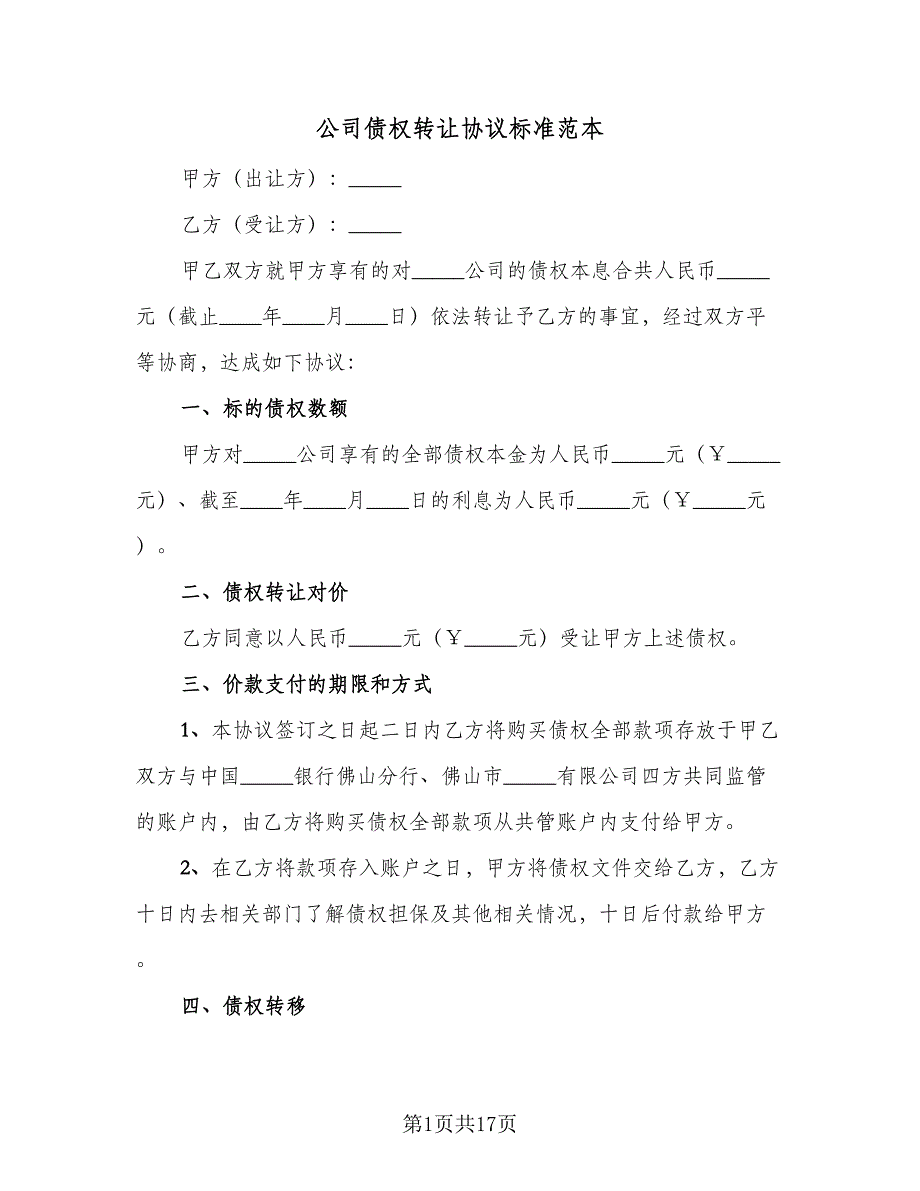 公司债权转让协议标准范本
甲方（出让方）：_____
乙方（受让方）：_____
甲乙双方就甲方享有的对_____公司的债权本息合共人民币_____
元（截止____年____月____日）依法转让予乙方的事宜，经过双方平
等协商，达成如下协议：
一、标的债权数额
甲方对_____公司享有的全部债权本金为人民币_____元（￥_____
元）、截至____年____月____日的利息为人民币_____元（￥_____元
）。
二、债权转让对价
乙方同意以人民币_____元（￥_____元）受让甲方上述债权。
三、价款支付的期限和方式
1、本协议签订之日起二日内乙方将购买债权全部款项存放于甲乙
双方与中国_____银行佛山分行、佛山市_____有限公司四方共同监管
的账户内，由乙方将购买债权全部款项从共管账户内支付给甲方。
2、在乙方将款项存入账户之日，甲方将债权文件交给乙方，乙方
十日内去相关部门了解债权担保及其他相关情况，十日后付款给甲方
。
四、债权转移
第1页共17页